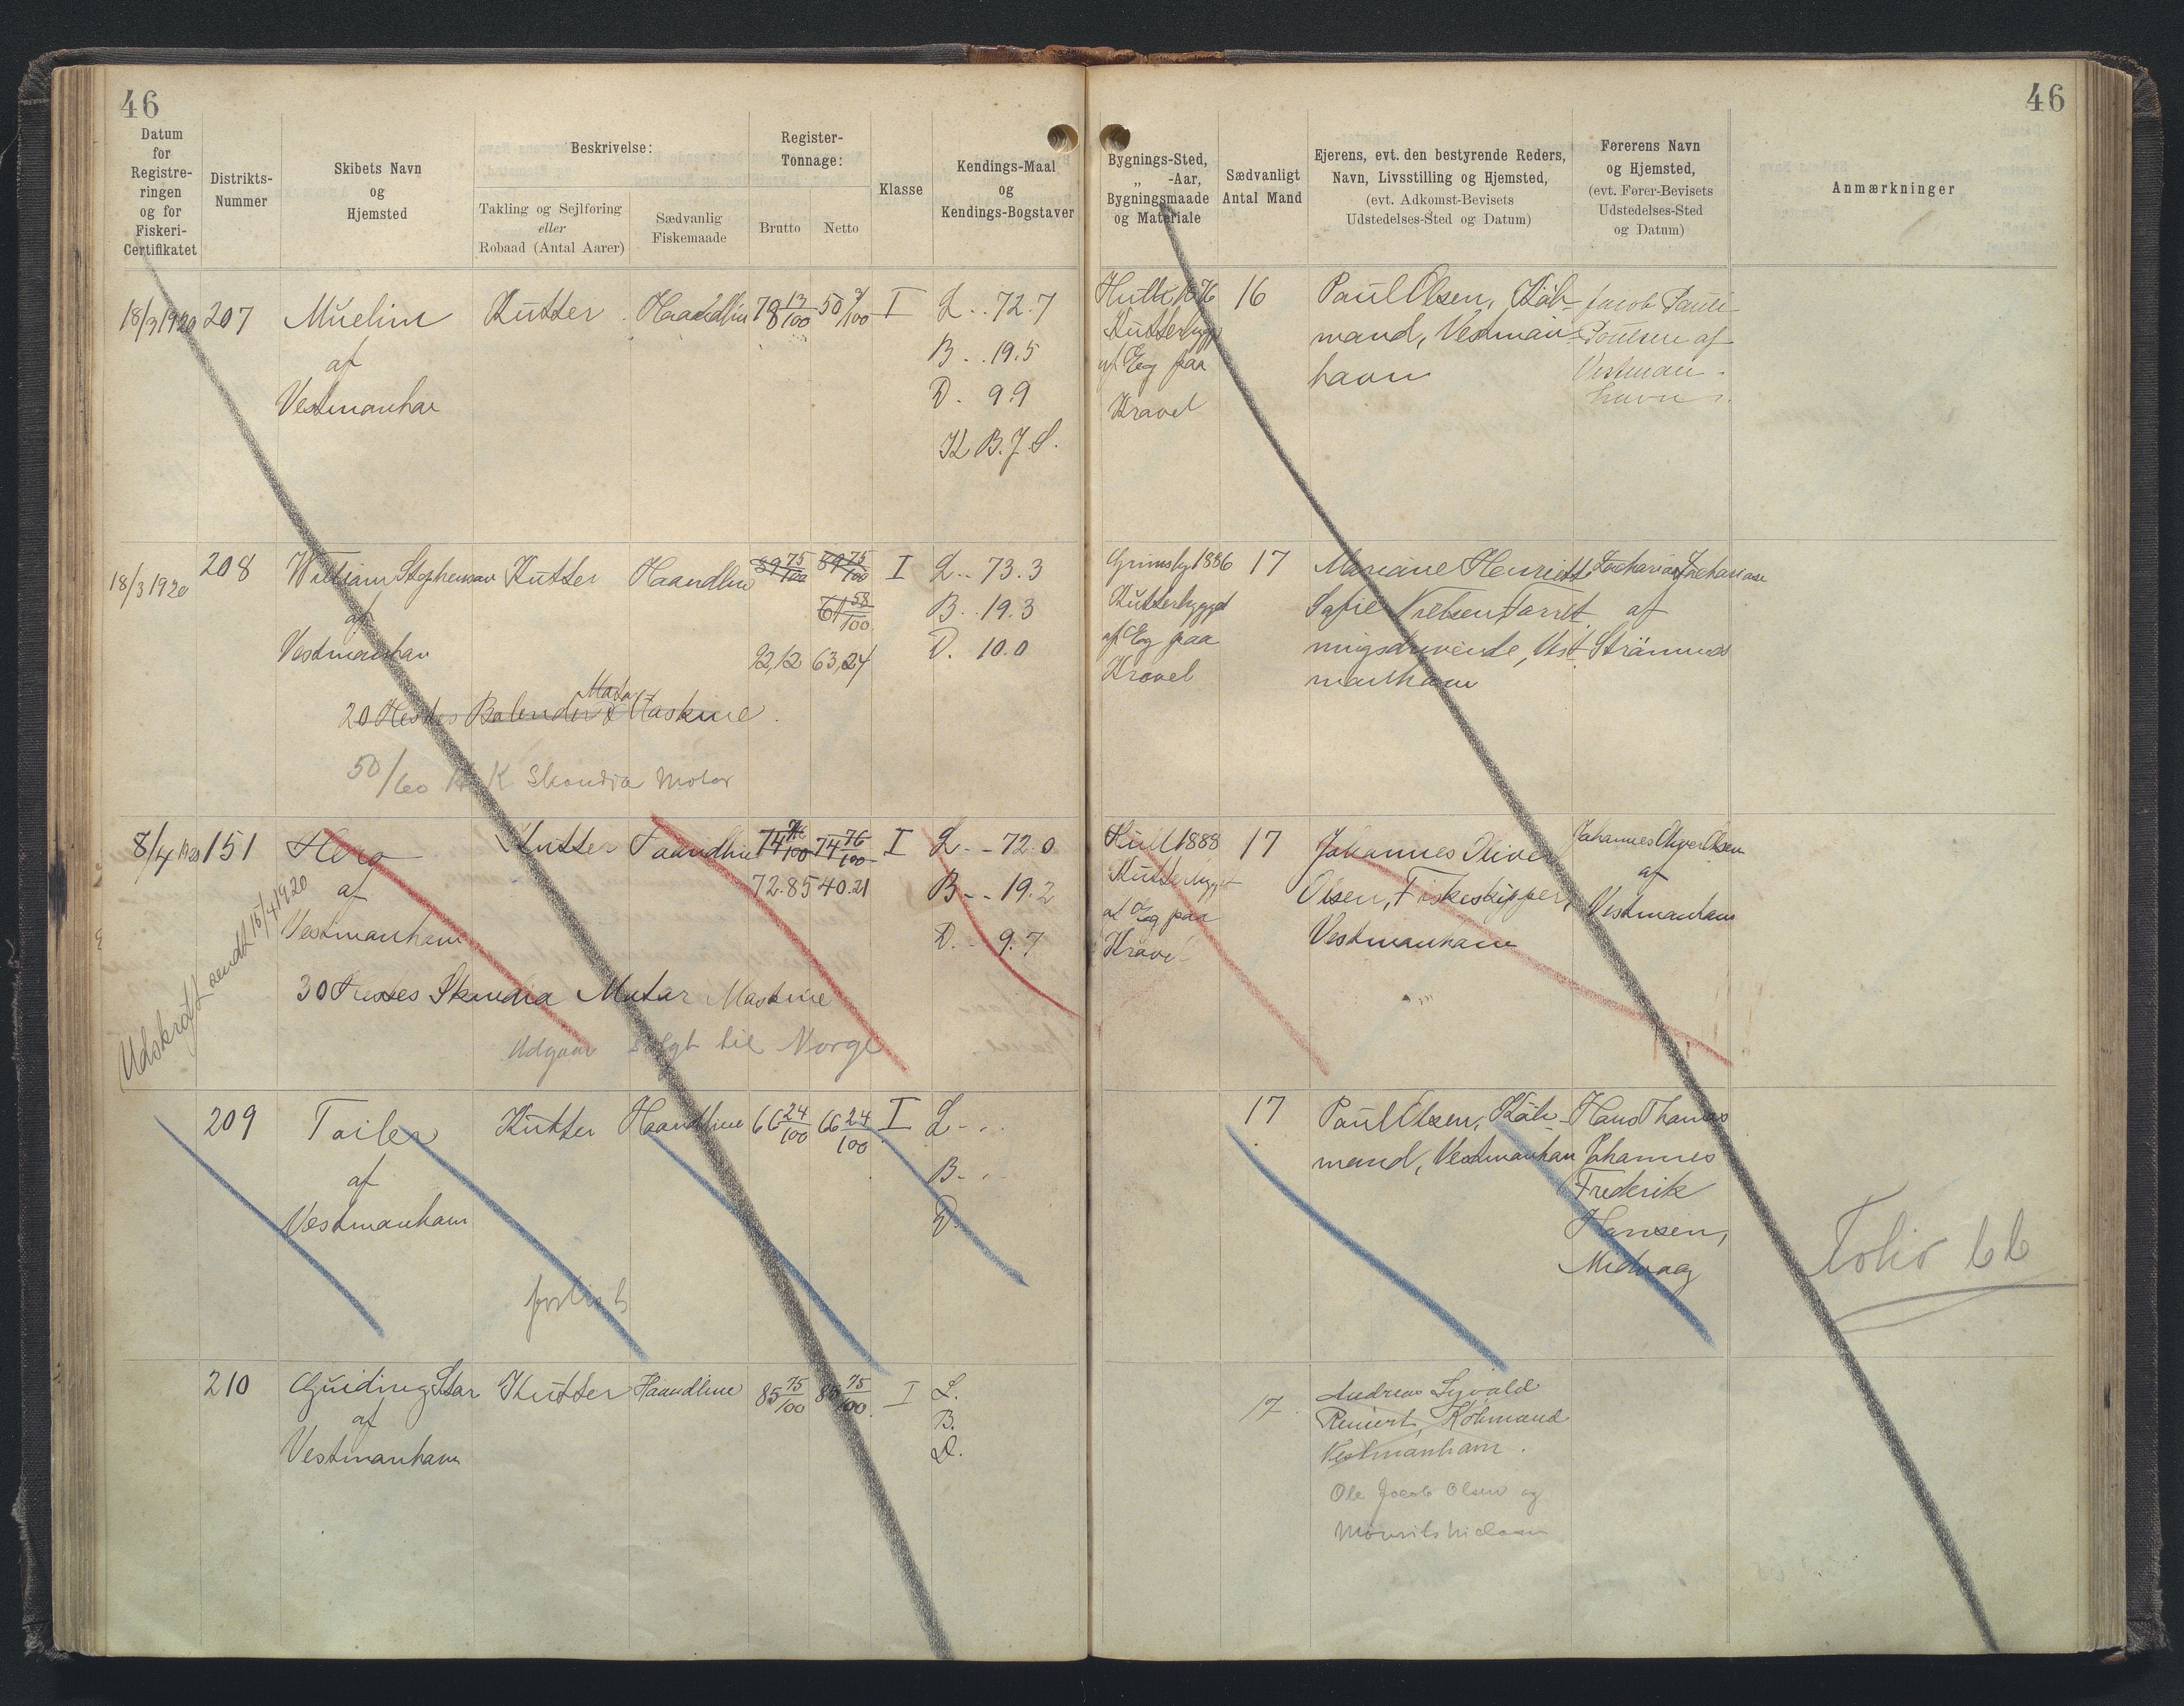 46
46
Datum
for
Registre-
ringen
og for
Fiskeri-
Certifikatet
Distrikts-
Nummer
Skibets Navn
og
Hjemsted
Beskrivelse:
Takling og Sejlføring
eller
Robaad (Antal Aarer)
Sædvanlig
Fiskemaade
Register-
Tonnage:
Brutto
Netto
Klasse
Kendings-Maal
og
Kendings-Bogstaver
Bygnings-Sted,
„ -Aar,
Bygningsmaade
og Materiale
Sædvanligt
Antal Mand
Ejerens, evt. den bestyrende Reders,
Navn, Livsstilling og Hjemsted,
(evt. Adkomst-Bevisets
Udstedelses-Sted og Datum)
Førerens Navn
og Hjemsted,
(evt. Fører-Bevisets
Udstedelses-Sted
og Datum)
Anmærkninger
18/3 1920 207
af
Vestmanhav
Kutter
Haandline
78 13/100
I
L. . 72.7
B. . 19.5
D. 9.9
K B. J. S.
Kutterbygg
af Eg paa
Kravel
16
Paul Olsen, Køb-
mand, Vestman-
havn
Jacob Pauli
Poulsen af
Vestman-
havn
18/3 1920
208
William Stephenson
af
Vestmanhavn
Kutter
Haandline
89 75/100
89 75/100
61 58/100
92,12 63,24
I
L. . 73.3
B. . 19.3
D. 10.0
20 Hestes Bolinder Motor Maskine.
50/60 H K Skandia Motor
Grimsby 1886
Kutterbygget
af Eg paa
Kravel
17
Mariane Henriette
Sofie Nielsen Forret
ningsdrivende, Vest
manhavn
Zacharias Zachariasen
af
Strømnæs
8/4 1920 151
Hero
af
Vestmanhavn
Kutter
Haandline
74 76/100 74 76/100
72.85 40.21
I
L. - 72.0
B. - 19.2
D. - 9.7
30 Hestes Skandia Motor Maskine
Udgaar Solgt til Norge
Udskrift sendt 15/4 1920
Hull 1888
Kutterbygget
af Eg paa
Kravel
17
Johannes Oliver
Olsen, Fiskeskipper,
Vestmanhavn
Johannes Oliver Olsen
af
Vestmanhavn
209
Toiler
af
Vestmanhavn
Kutter
Haandline
66 24/100 66 24/100
I
L. . .
B. . .
D.
forlist
17
Paul Olsen, Køb-
mand, Vestmanhavn
Hans Thomas
Johannes
Frederik
Hansen,
Midvaag
Folio 66
210
Guiding Star
af
Vestmanhavn
Kutter
Haandline
85 75/100 85 75/100
I
L.
B.
D.
17
Andreas
Reinert, Købmand
Vestmanhavn.
Ole Jacob Olsen og
Mourits Nielsen